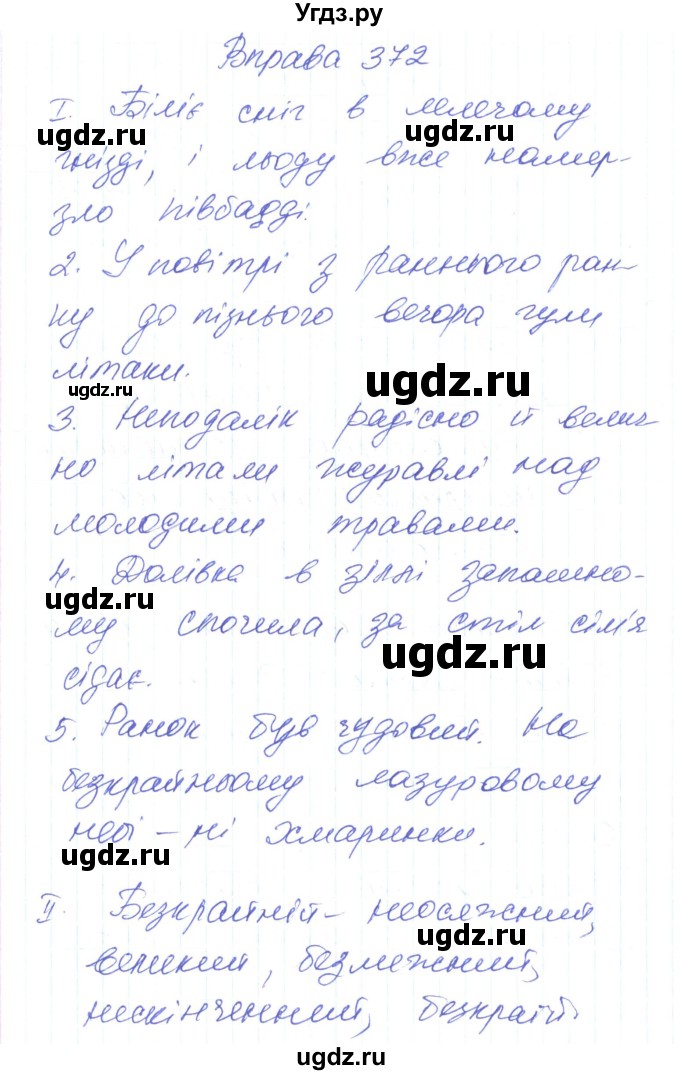 Угдз.ру
Вправа 372
I. Біліє сніг в лелечому
ugdz.ru ugdz.ru
гнізді, і льоду вже намер-
зло півбадді.
2. У повітрі з раннього ран-
ку до пізнього вечора гули
літаки.
ugdz.ru ugdz.ru
3. Неподалік радісно й велич-
но літали журавлі над
молодими травами.
4. Долівка в зіллі запашно-
ugdz.ru
му спочила, за стіл сім'я
ugdz.ru
сідає.
5. Ранок був чудовий. На
безкрайньому лазуровому
небі – ні хмаринки.
ugdz.ru
II. Безкрайній – неосяжний,
ugdz.ru
великий, безмежний,
нескінченний, безкраїй.
ugdz.ru